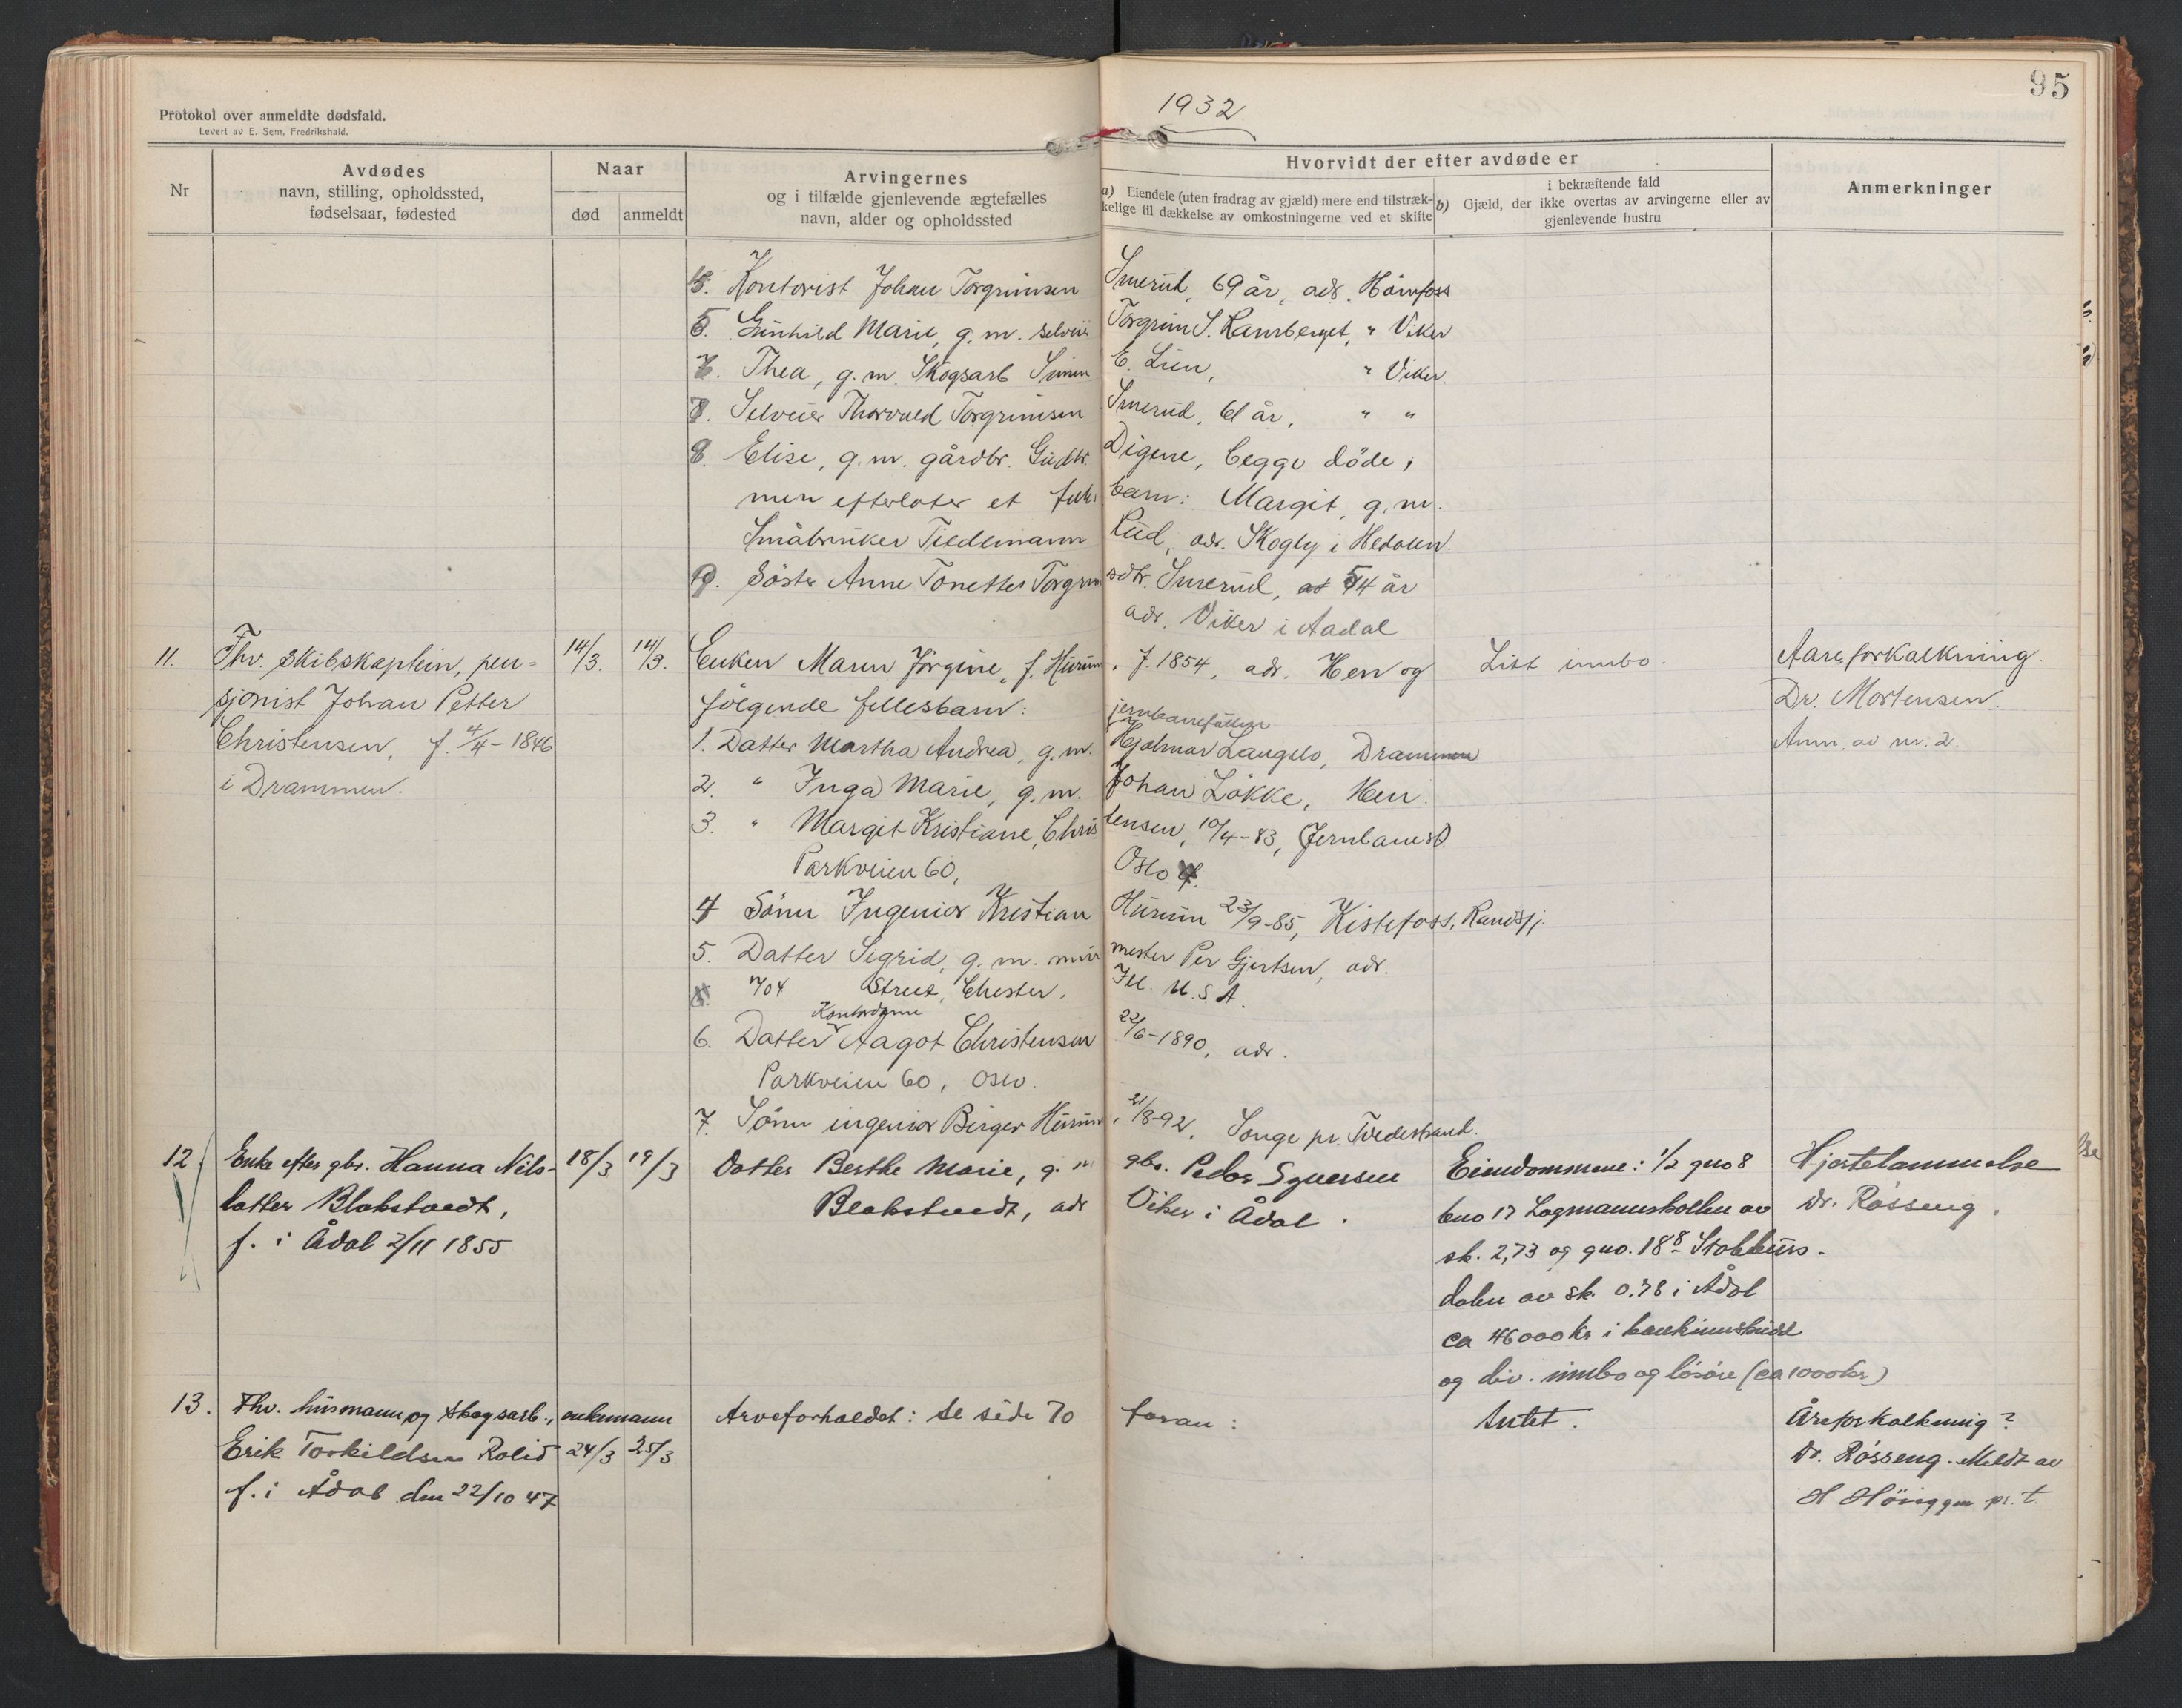 95
1932
Protokol over anmeldte dødsfald.
Levert av E. Sem, Fredrikshald.
Nr
Avdødes
navn, stilling, opholdssted,
fødselsaar, fødested
Naar
død
anmeldt
Arvingernes
og i tilfælde gjenlevende ægtefælles
navn, alder og opholdssted
Hvorvidt der efter avdøde er
a) Eiendele (uten fradrag av gjæld) mere end tilstræk-
kelige til dækkelse av omkostningerne ved et skifte
i bekræftende fald
b) Gjæld, der ikke overtas av arvingerne eller av
gjenlevende hustru
Anmerkninger
Kontorist Johan Torgrimsen Smerud, 69 år, adr. Hönefoss
Gunhild Marie, g. m. selveier Torgrim S. Ramberget, " Viker
Thea, g. m. Skogsarb Simen E. Lien, " Viker.
Selveier Thorvald Torgrimsen Smerud, 61 år, " "
8. Elise, g. m. gårdbr. Gudbr. Digene, begge döde,
men efterlater et felles barn: Margit, g. m.
Småbruker Tiedemann Rud, adr. Skogly i Hedalen.
9. Söster Anne Tonette Torgrimsdtr. Smerud, 54 år
adr. Viker i Aadal
11. Fhv. Skibskaptein, pen-
sjonist Johan Petter
Christensen, f. 4/4 - 1846
i Drammen.
14/3. 14/3.
Enken Maren Jörgine, f. Hurum, f. 1854, adr. Hen og
fölgende fellesbarn:
1. Datter Martha Andrea, g. m. Hjalmar Langslo, Drammen
2. " Inga Marie, g. m. Johan Lökke, Hen.
3. " Margit Kristiane, Christensen, 10/4 - 83, Jernbanest.
Parkveien 60, Oslo
4 Sönn Ingeniör Kristian Hurum 23/9-85, Kistefoss, Randsfj.
5. Datter Sigrid, g. m. mur mester Per Gjertsen, adr.
Street, Chester, Ill. U.S.A.
Kontordame
6. Datter Aagot Christensen 22/6-1890, adr.
Parkveien 60, Oslo.
7. Sönn ingeniör Birger Hurum, 21/8-92, Songe pr. Tvedestrand.
Litt innbo.
Aareforkalkning.
Dr. Mortensen.
Anm. av nr. 2.
12. Enke efter gbr. Hanna Nils-
datter Blakstvedt,
f. i Ådal 2/11 1855
18/3 19/3
Datter Berthe Marie, g. m gbr. Peder Syversen
Blakstvedt, adr Viker i Ådal.
Eiendommene: 1/2 gno 8
bno 17 Lagmannskollen av
sk. 2,73 og gno. 18
dalen av sk. 0.78 i Ådal
ca 46000 kr i bankinnskudd
og div. innbo og lösöre (ca 1000 kr)
Hjertelammelse
Dr. Rösseng.
13. Fhv. husmann og skogsarb., enkemann
Erik Torkildsen Rolid 24/3 25/3
f. i Ådal den 22/10 47
Arveforholdet: se side 70 foran:
Intet.
Åreforkalkning?
Dr. Rösseng. Meldt av
pr. t.